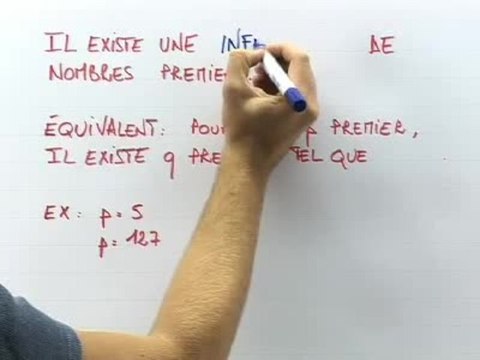 IL EXISTE UNE INF DE
NOMBRES PREMIE
ÉQUIVALENT: POU P PREMIER,
IL EXISTE q PRE TEL QUE
EX: p = 5
p = 127